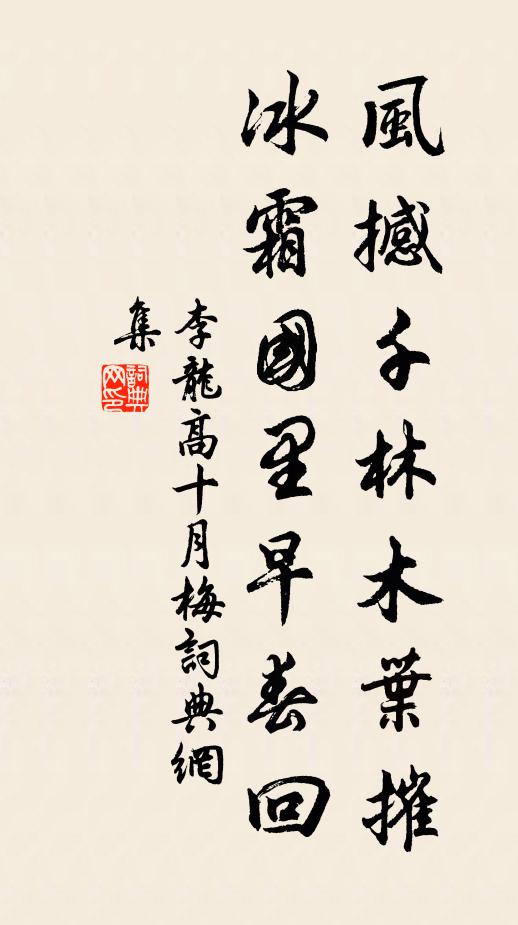 風撼千林木葉摧
冰霜國里早春回
李龍高十月梅詞典網
集
詞典
网印